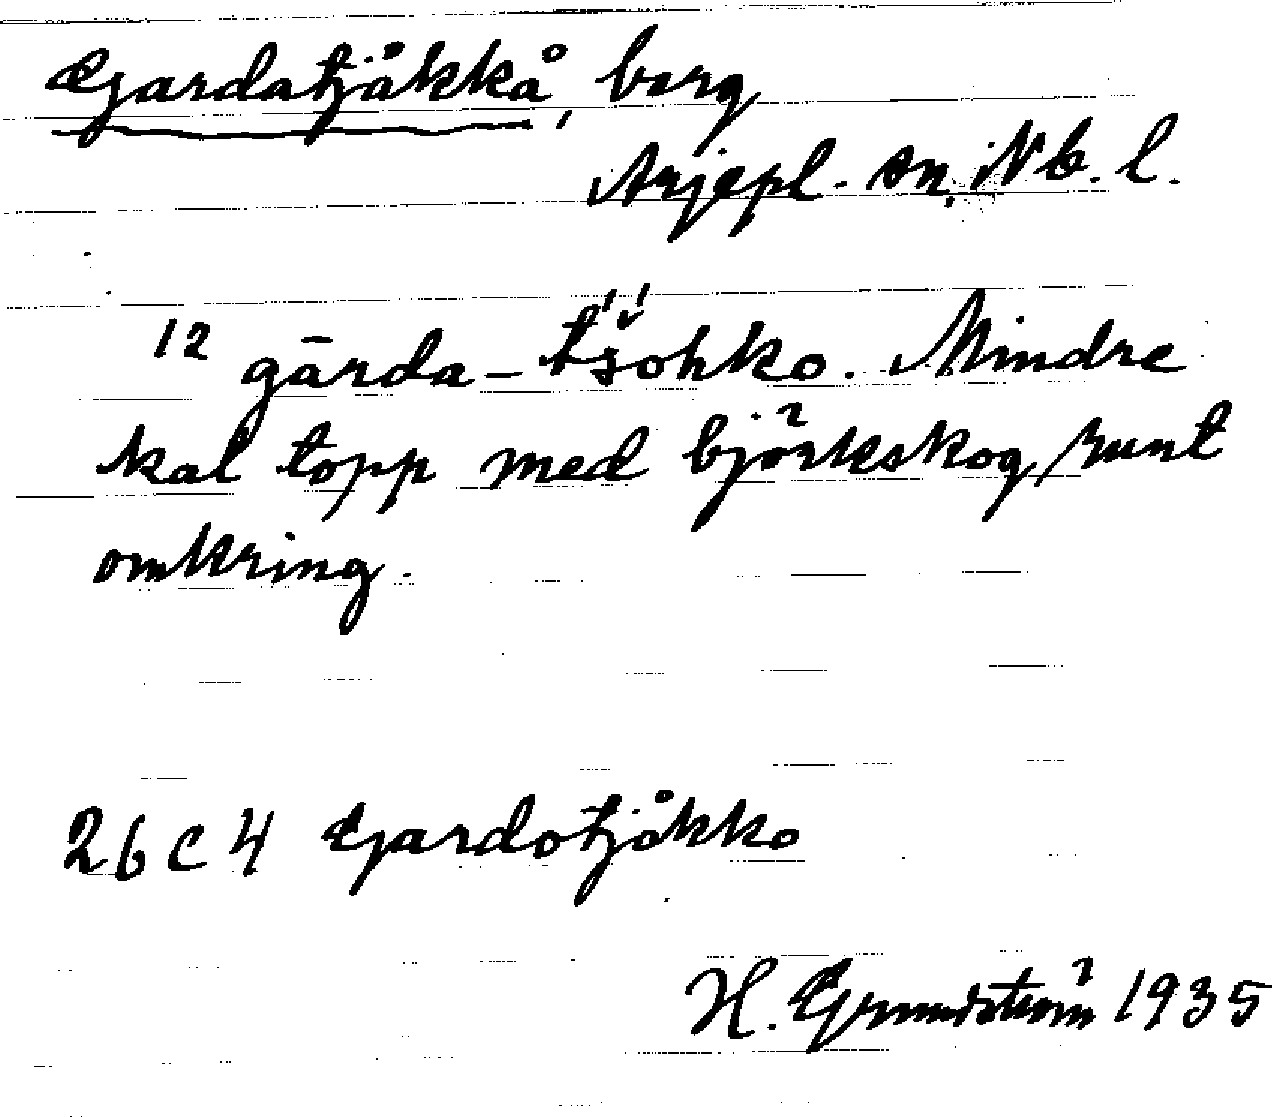 Gardatjåkkå, berg
Arjepl. sn, Nb. l.
12 gārda-tš̌ohko. Mindre
kal topp med björkskog runt
omkring.
26 C 4 Gardotjåkko
H. Grundström 1935